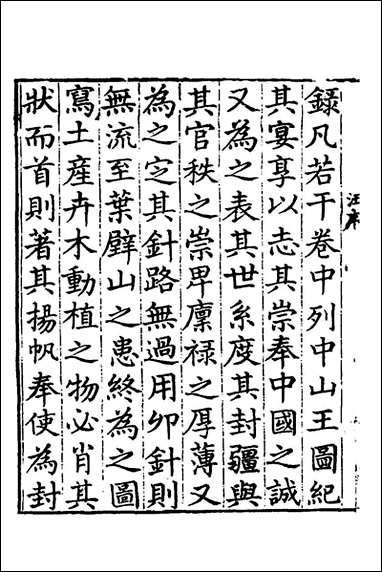 錄凡若干卷中列中山王圖紀
其宴享以志其崇奉中國之誠
又為之表其世系度其封疆與
其官秩之崇卑廩禄之厚薄又
為之定其針路無過用卯針則
無流至葉壁山之患終為之圖
寫土産卉木動植之物必肖其
狀而首則著其揚帆奉使為封